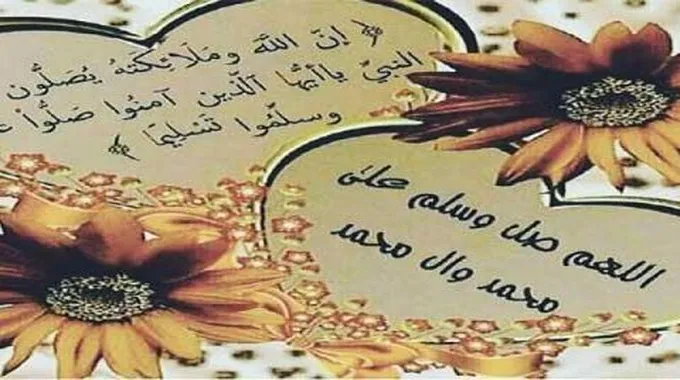 ﴿ إِنَّ اللَّهَ وَمَلَائِكَتَهُ يُصَلُّونَ
النَّبِيِّ يَا أَيُّهَا الَّذِينَ آمَنُوا صَلُّوا
وَسَلِّمُوا تَسْلِيمًا ﴾
اللهم صل وسلم على
محمد وال محمد